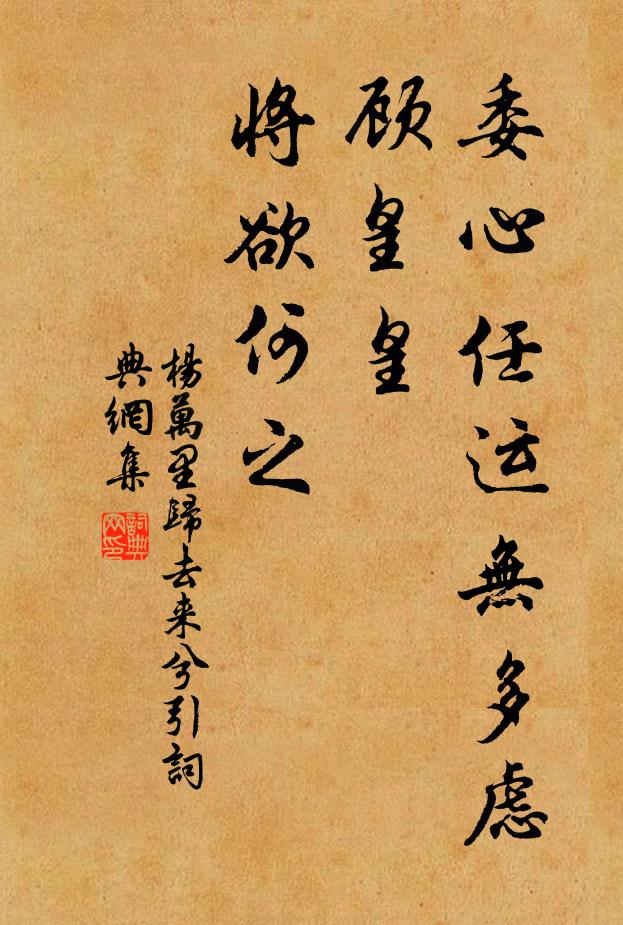 委心任运無多慮
顾皇皇
将欲何之
楊萬里歸去来兮引詞
典網集
詞典網印